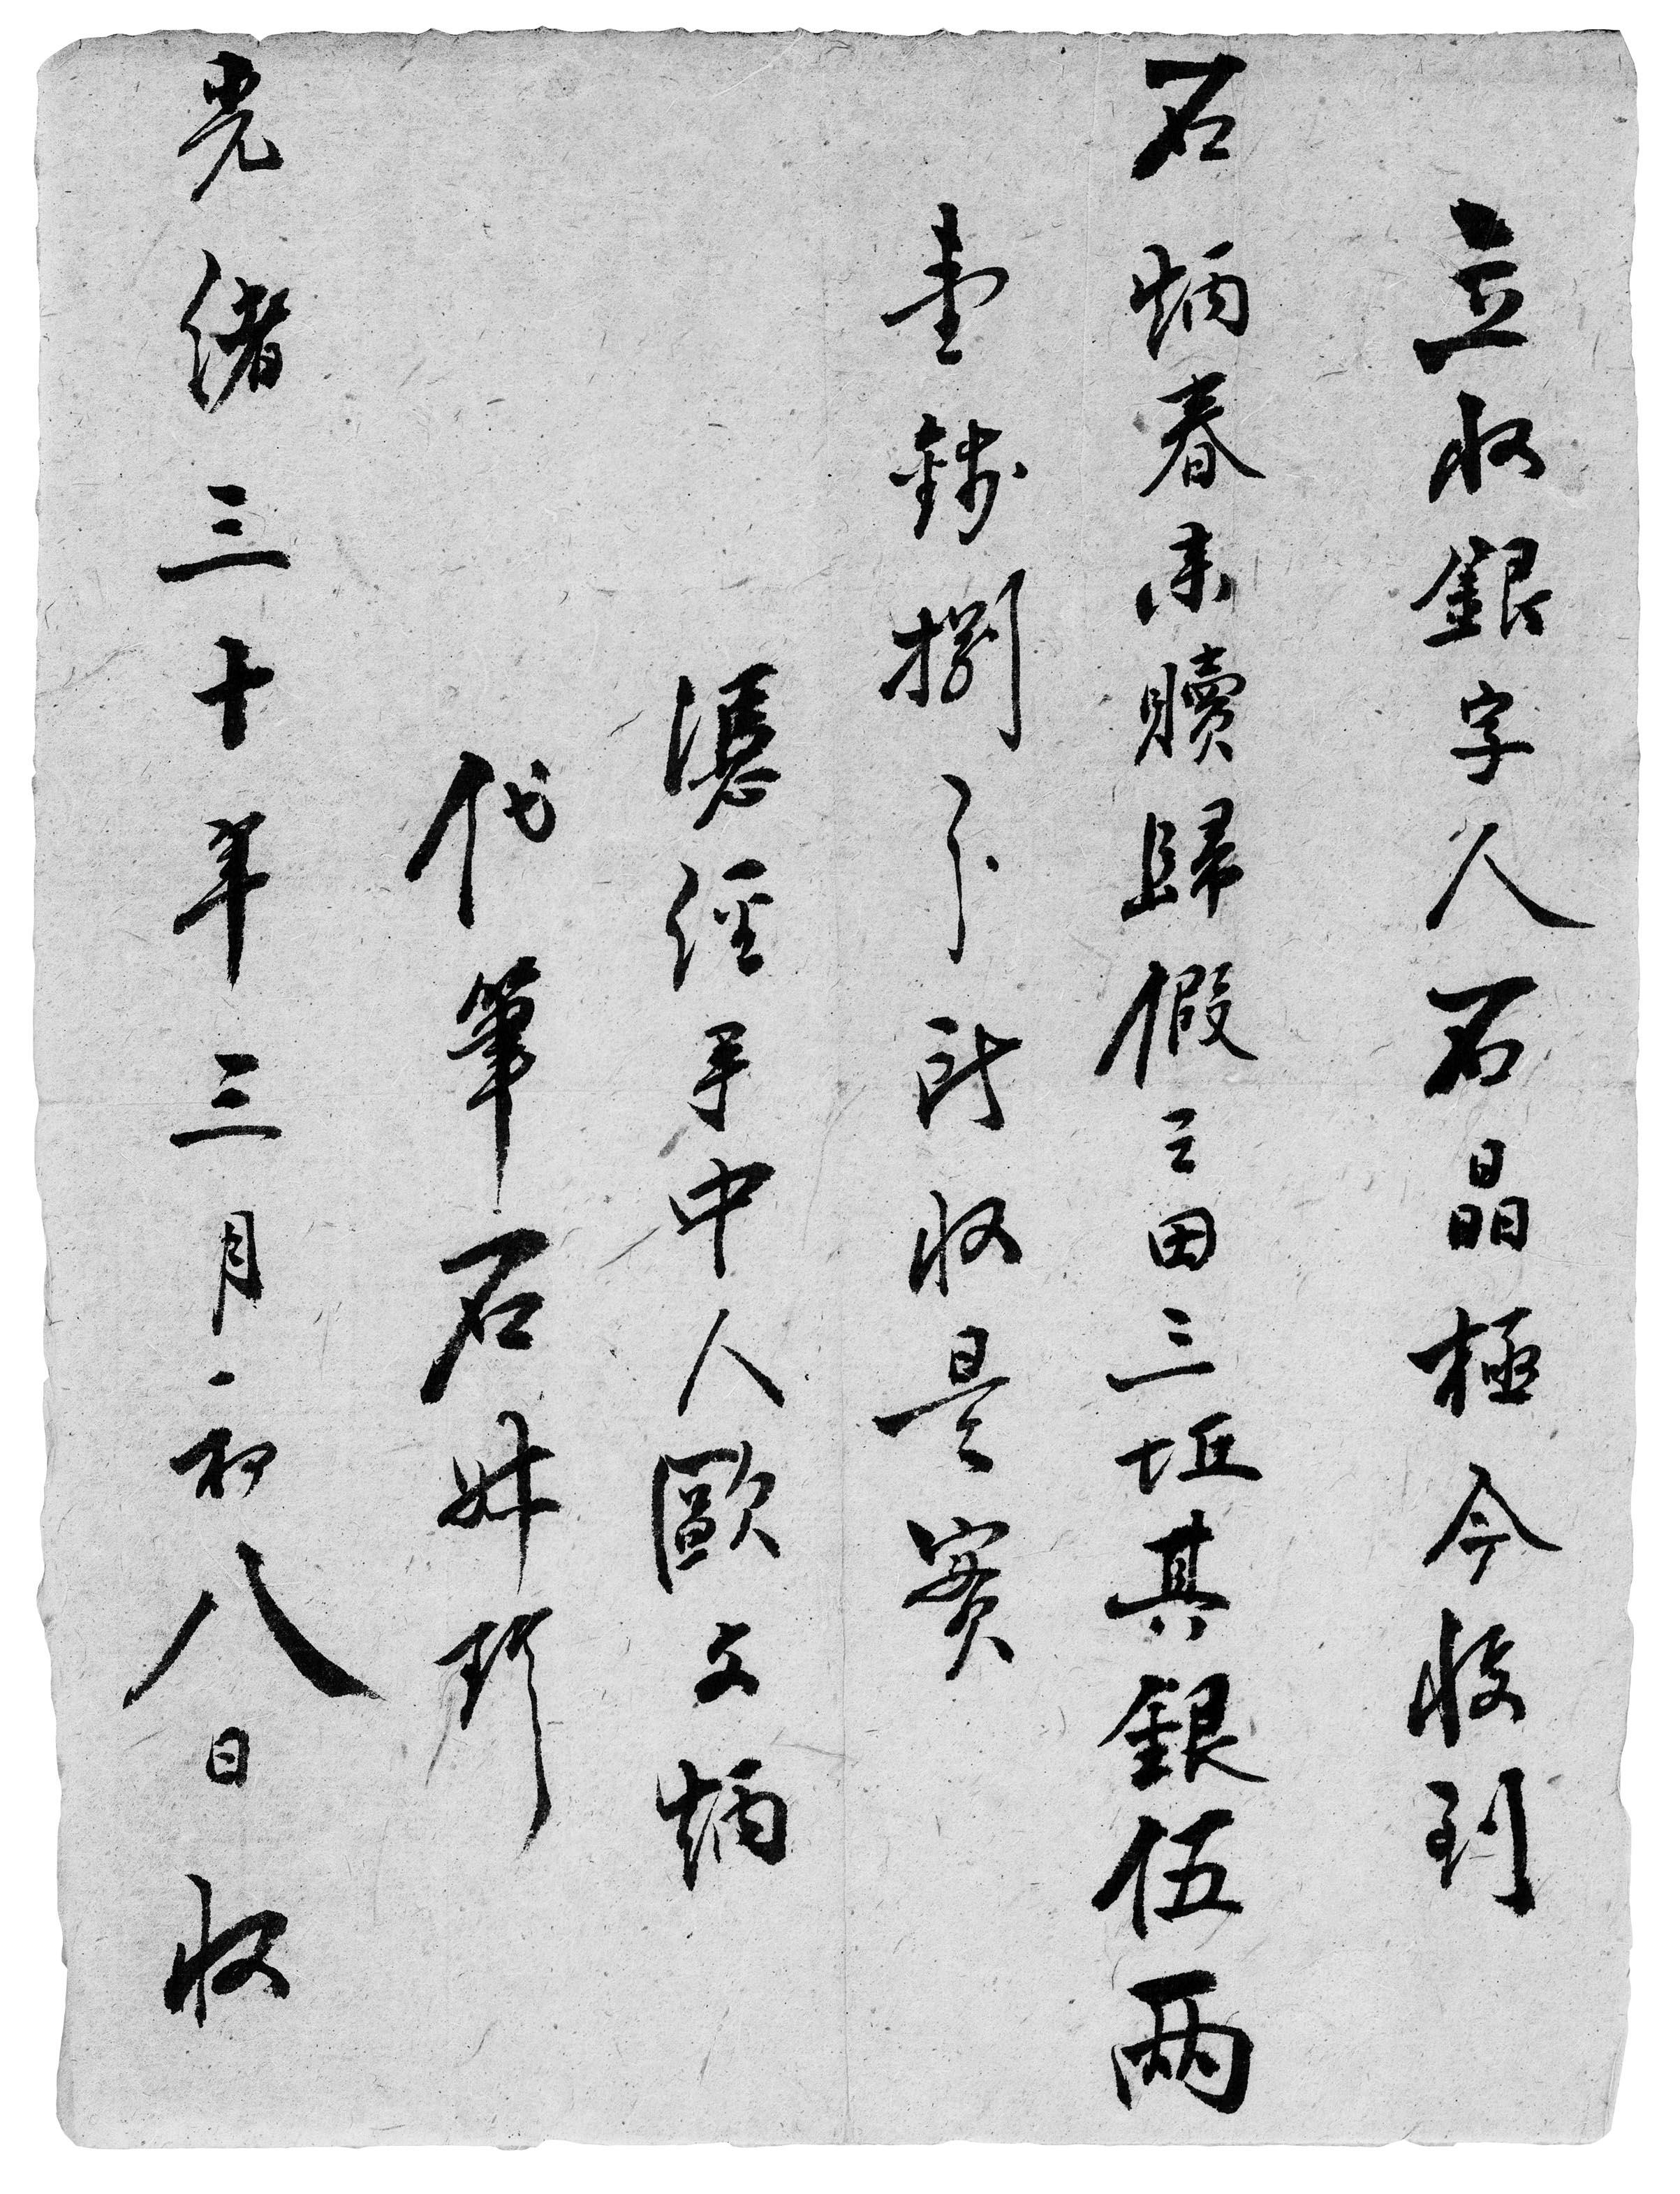 立收銀字人石晶極今收到
石炳春來贖歸假三田三坵其銀伍兩
壹錢捌分所收是實
憑經手中人歐文炳
代筆石妹珍
光緒三十年三月初八日收